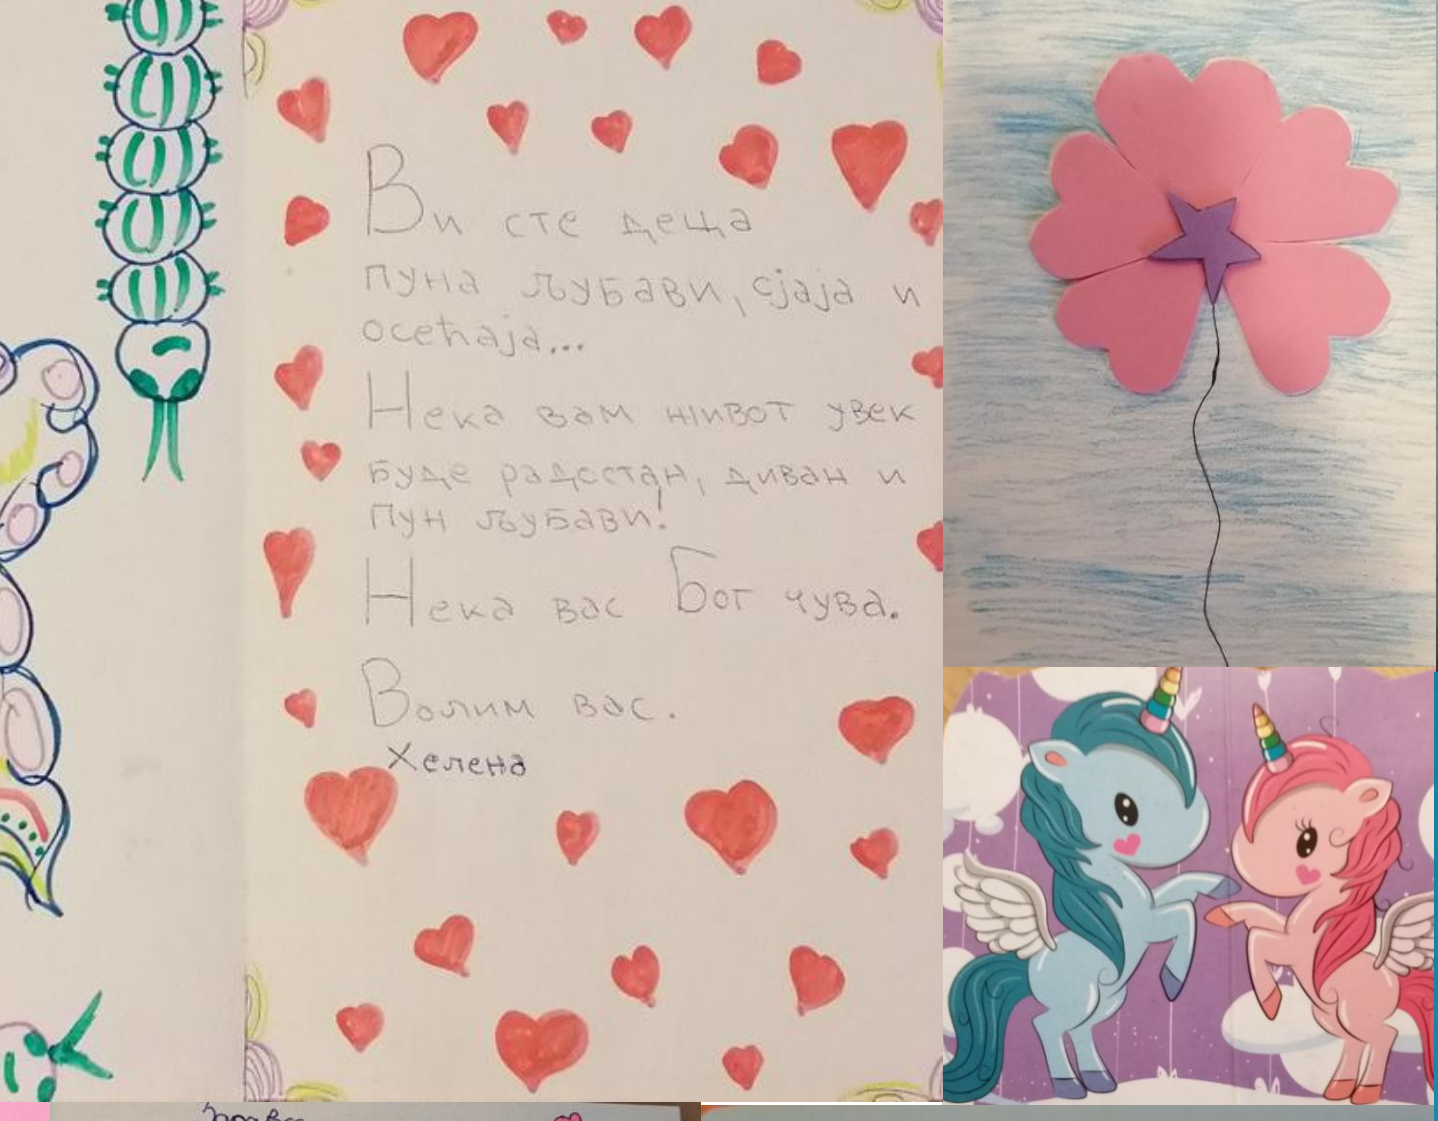 Ви сте деца
пуна љубави, сјаја и
осећаја...
Нека вам живот увек
буде радостан, диван и
пун љубави!
Нека вас Бог чува.
Волим вас.
Хелена